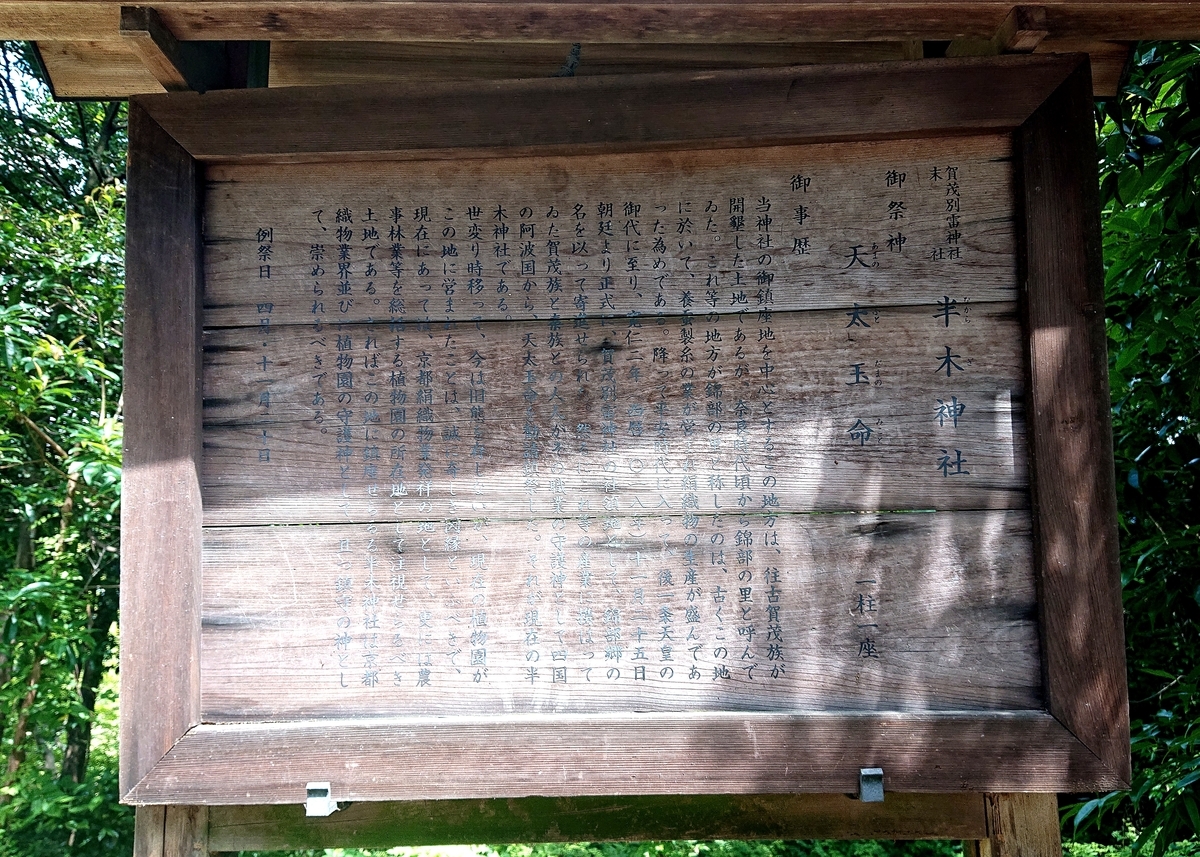 賀茂別雷神社
末社
半木神社
なからぎ
御祭神
天太玉命 一柱一座
あめの ふと たまの みこと
御事歴
当神社の御鎮座地を中心とするこの地方は、往古賀茂族が
開墾した土地であるが、奈良時代頃から錦部の里と呼んで
ゐた。これ等の地方が錦部の里と称したのは、古くこの地
に於いて、養蚕製糸の業が営まれ絹織物の生産が盛んであ
った為めである。降って平安時代に入って、後一条天皇の
御代に至り、寛仁二年 西暦一〇一八年 十一月二十五日
朝廷より正式に、賀茂別雷神社の社領地として、錦部郷の
名を以って寄進せられ
ゐた賀茂族と秦族との人々が、その職業の守護神として四国
の阿波国から、天太玉命を 。それが現在の半
木神社である。
世変り時移って、今は旧態 、現在の植物園が
この地に営まれたことは、誠に べきで、
現在にあっては、京都絹織物業発祥の地とし、更には農
事林業等を総括する植物園の所在地として注視せらるべき
土地である。さればこの地に鎮座せらるる半木神社は京都
織物業界並びに植物園の守護神とし、且つ の神とし
て、崇められるべきである。
例祭日 四月・十一月 日